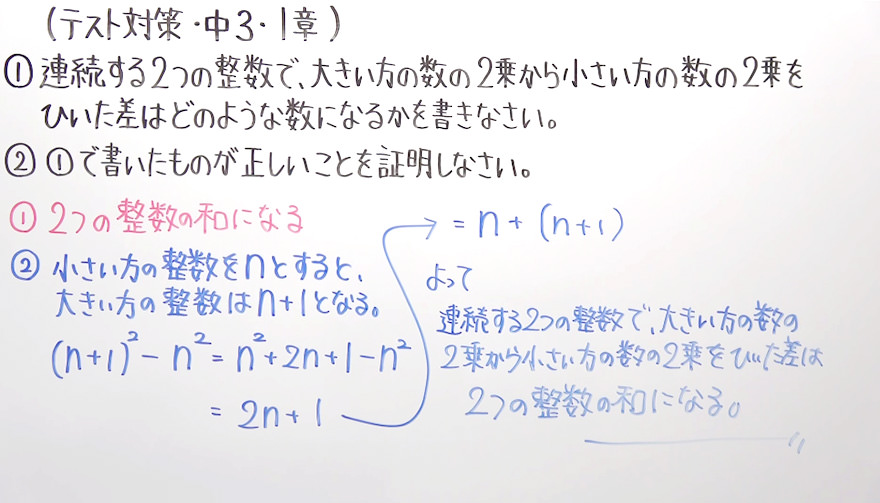 (テスト対策・中3・1章)
① 連続する2つの整数で、大きい方の数の2乗から小さい方の数の2乗を
ひいた差はどのような数になるかを書きなさい。
② ①で書いたものが正しいことを証明しなさい。
① 2つの整数の和になる
② 小さい方の整数をnとすると、
大きい方の整数はn+1となる。
(n+1)² - n² = n² + 2n + 1 - n²
= 2n + 1
= n + (n+1)
よって
連続する2つの整数で、大きい方の数の
2乗から小さい方の数の2乗をひいた差は
2つの整数の和になる。